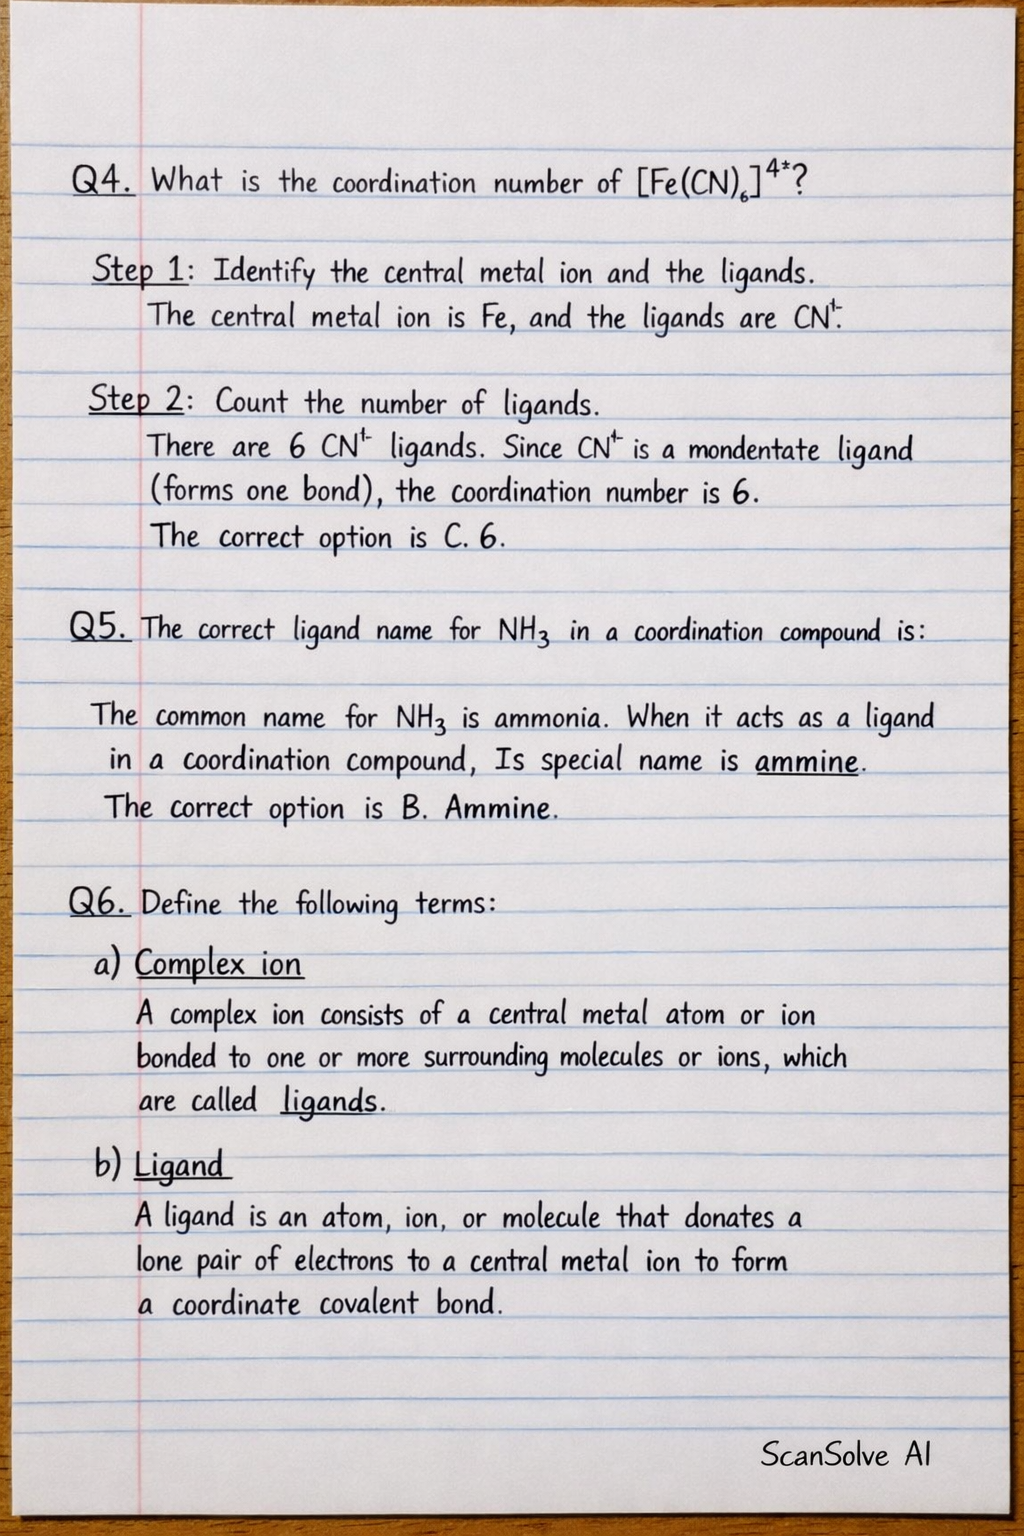 Q4. What is the coordination number of [Fe(CN)₆]⁴⁺?
Step 1: Identify the central metal ion and the ligands.
The central metal ion is Fe, and the ligands are CN⁺⁻.
Step 2: Count the number of ligands.
There are 6 CN⁺⁻ ligands. Since CN⁺⁻ is a mondentate ligand
(forms one bond), the coordination number is 6.
The correct option is C. 6.
Q5. The correct ligand name for NH₃ in a coordination compound is:
The common name for NH₃ is ammonia. When it acts as a ligand
in a coordination compound, Is special name is ammine.
The correct option is B. Ammine.
Q6. Define the following terms:
a) Complex ion
A complex ion consists of a central metal atom or ion
bonded to one or more surrounding molecules or ions, which
are called ligands.
b) Ligand
A ligand is an atom, ion, or molecule that donates a
lone pair of electrons to a central metal ion to form
a coordinate covalent bond.
ScanSolve AI